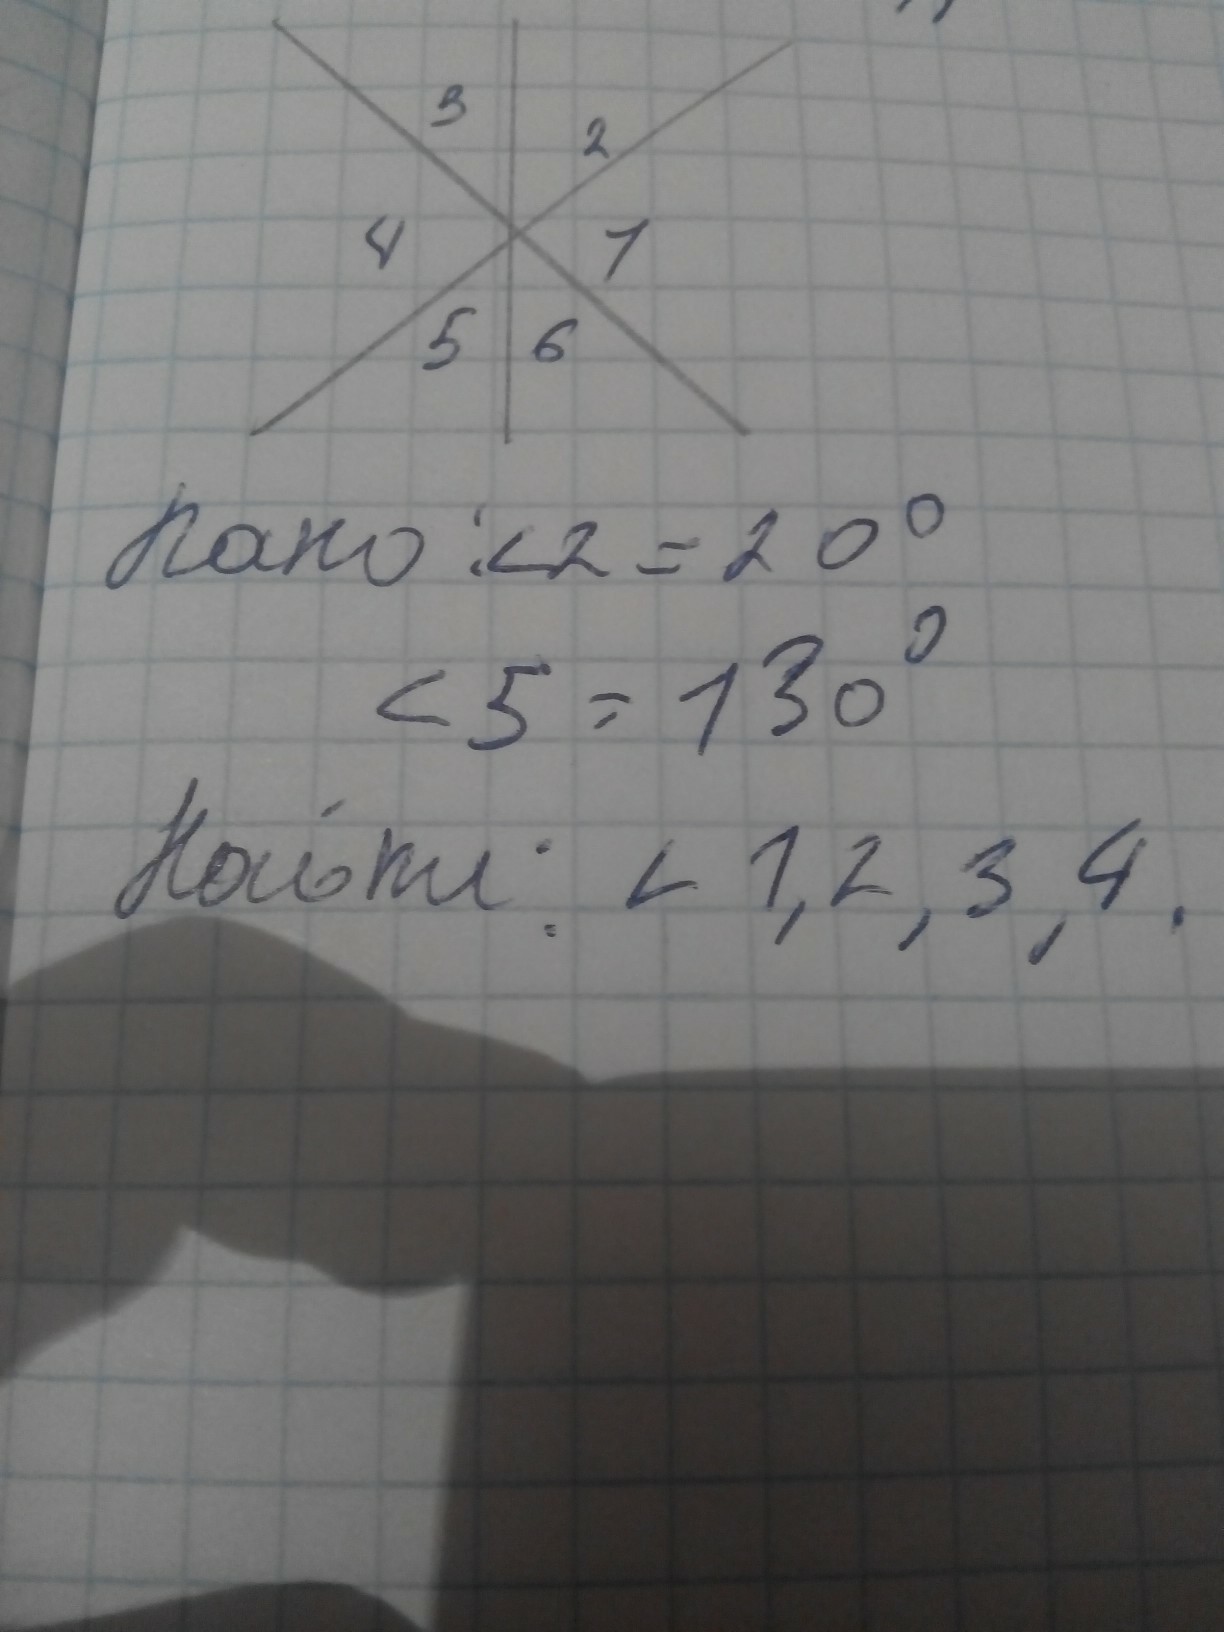 3
2
4
1
5 6
Дано: <2 = 20°
<5 = 130°
Найти: < 1, 2, 3, 4.